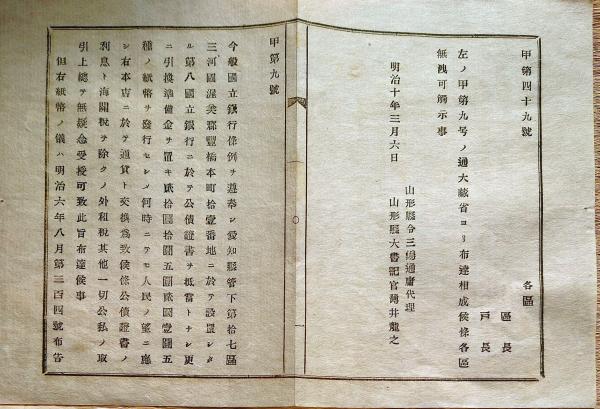 甲第四十九號
各區
區長
戸長
左ノ甲第九号ノ通大藏省ヨリ布達相成候條各區
無洩可觸示事
明治十年三月六日
山形縣令三島通庸代理
山形縣大書記官薄井龍之
甲第九號
今般國立銀行條例ヲ遵奉シ愛知縣管下第拾七區
三河國渥美郡豐橋本町拾壹番地ニ於テ設置シタ
ル第八國立銀行ニ於テ公債證書ヲ抵當トナシ更
ニ引換準備金ヲ置キ貳拾圓拾圓五圓貳圓壹圓五
種ノ紙幣ヲ發行セシメ何時ニテモ人民ノ望ニ應
シ右本店ニ於テ通貨ト交換爲致候條公債證書ノ
利息ト海關税ヲ除クノ外租税其他一切公私ノ取
引上總テ無疑念受授可致此旨布達候事
但右紙幣ノ儀ハ明治六年八月第三百四號布告